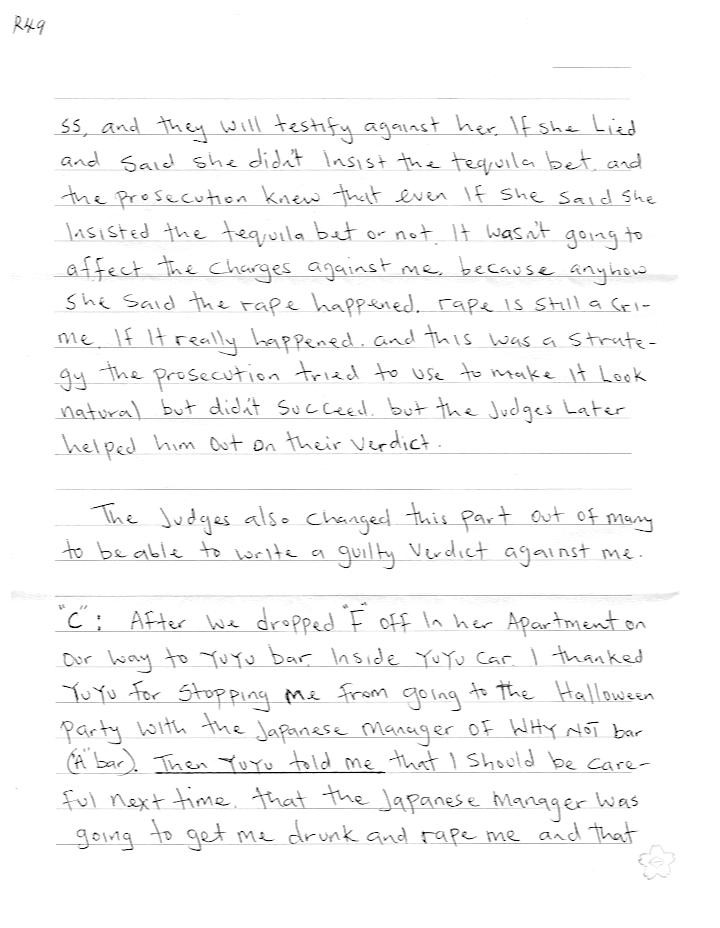 R49
ss, and they will testify against her. If she Lied
and said she didn't Insist the tequila bet. and
the prosecution knew that even If she said she
Insisted the tequila bet or not. It wasn't going to
affect the charges against me. because anyhow
she said the rape happened. rape is still a cri-
me. If It really happened. and this was a strate-
gy the prosecution tried to use to make It Look
natural but didn't succeed. but the Judges Later
helped him out on their verdict.
The Judges also changed this part out of many
to be able to write a guilty verdict against me.
"C": After we dropped "F" off In her Apartment on
Our way to YUYU bar. Inside YUYU Car. I thanked
YUYU for stopping me from going to the Halloween
Party with the Japanese manager of WHY NOT bar
("A" bar). Then YUYU told me that I should be care-
ful next time. that the Japanese manager was
going to get me drunk and rape me and that